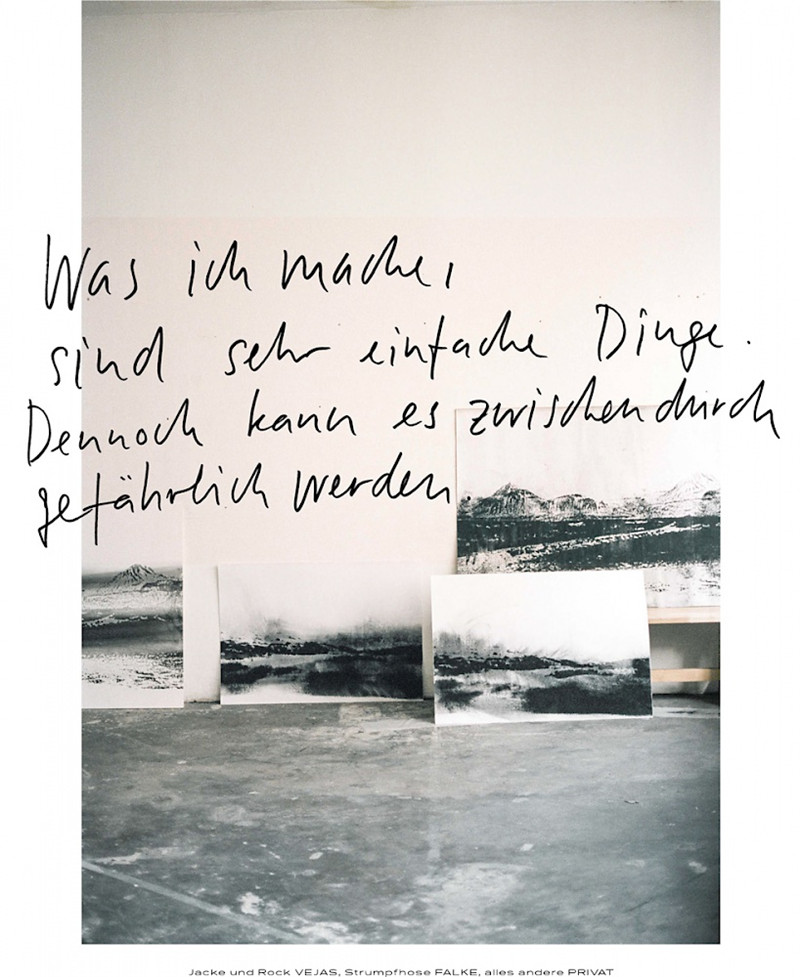 Was ich mache,
sind sehr einfache Dinge.
Dennoch kann es zwischendurch
gefährlich werden
Jacke und Rock VEJAS, Strumpfhose FALKE, alles andere PRIVAT